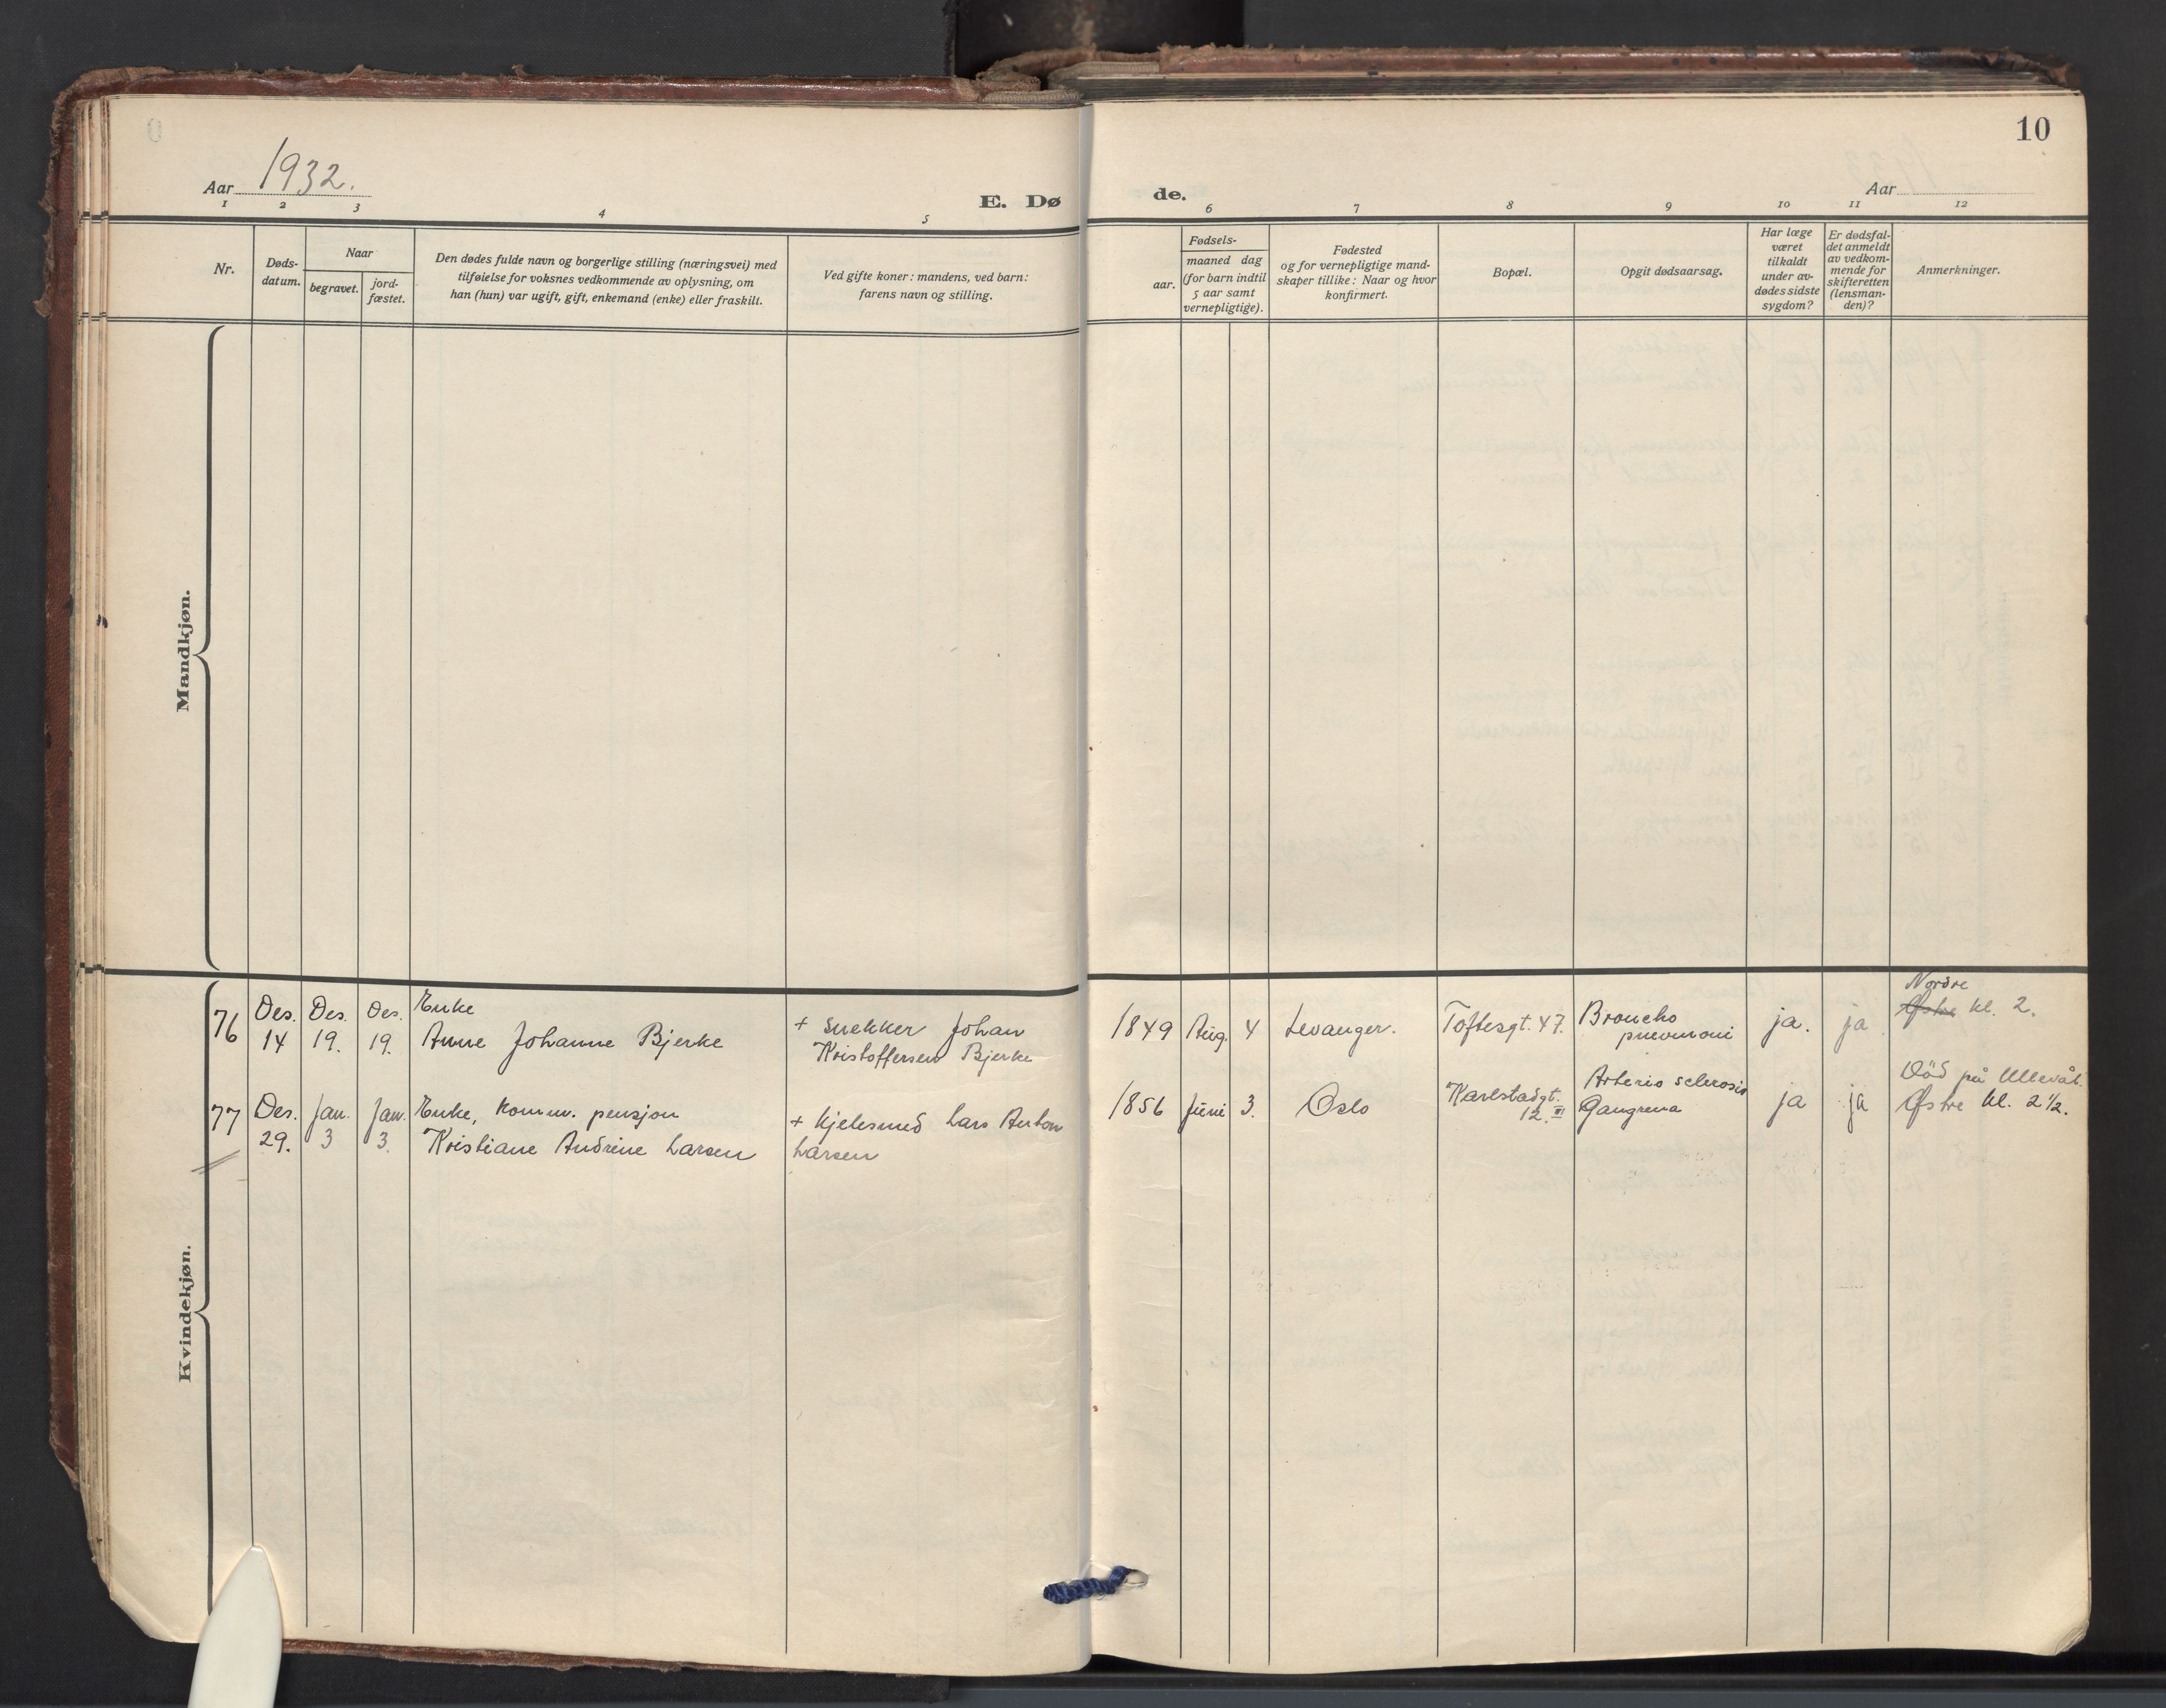 10
Aar 1932.
E. Døde.
Aar
1 2 3 4 5 6 7 8 9 10 11 12
Nr.
Døds-
datum.
Naar
begravet.
jord-
fæstet.
Den dødes fulde navn og borgerlige stilling (næringsvei) med
tilføielse for voksnes vedkommende av oplysning, om
han (hun) var ugift, gift, enkemand (enke) eller fraskilt.
Ved gifte koner: mandens, ved barn:
farens navn og stilling.
Fødsels-
aar.
maaned dag
(for barn indtil
5 aar samt
vernepligtige).
Fødested
og for vernepligtige mand-
skaper tillike: Naar og hvor
konfirmert.
Bopæl.
Opgit dødsaarsag.
Har læge
været
tilkaldt
under av-
dødes sidste
sygdom?
Er dødsfal-
det anmeldt
av vedkom-
mende for
skifteretten
(lensman-
den)?
Anmerkninger.
Mandkjøn.
Kvindekjøn.
76
Des.
14
Des.
19.
Des.
19.
Enke
Anne Johanne Bjerke
+ Snekker Johan
Kristoffersen Bjerke
1849
Aug.
4
Levanger.
Toftesgt. 47.
Broncho
pneumoni
ja.
ja
Nordre
Østre kl. 2.
77
Des.
29.
Jan.
3
Jan.
3.
Enke, komm. pensjon
Kristiane Andrine Larsen
+ Kjelesmed Lars Anton
Larsen
1856
Juni
3.
Oslo
Karlstadgt.
12. III
Arterio sclerosis
Gangrena
ja
ja
Død på Ullevål.
Østre kl. 2 1/2.